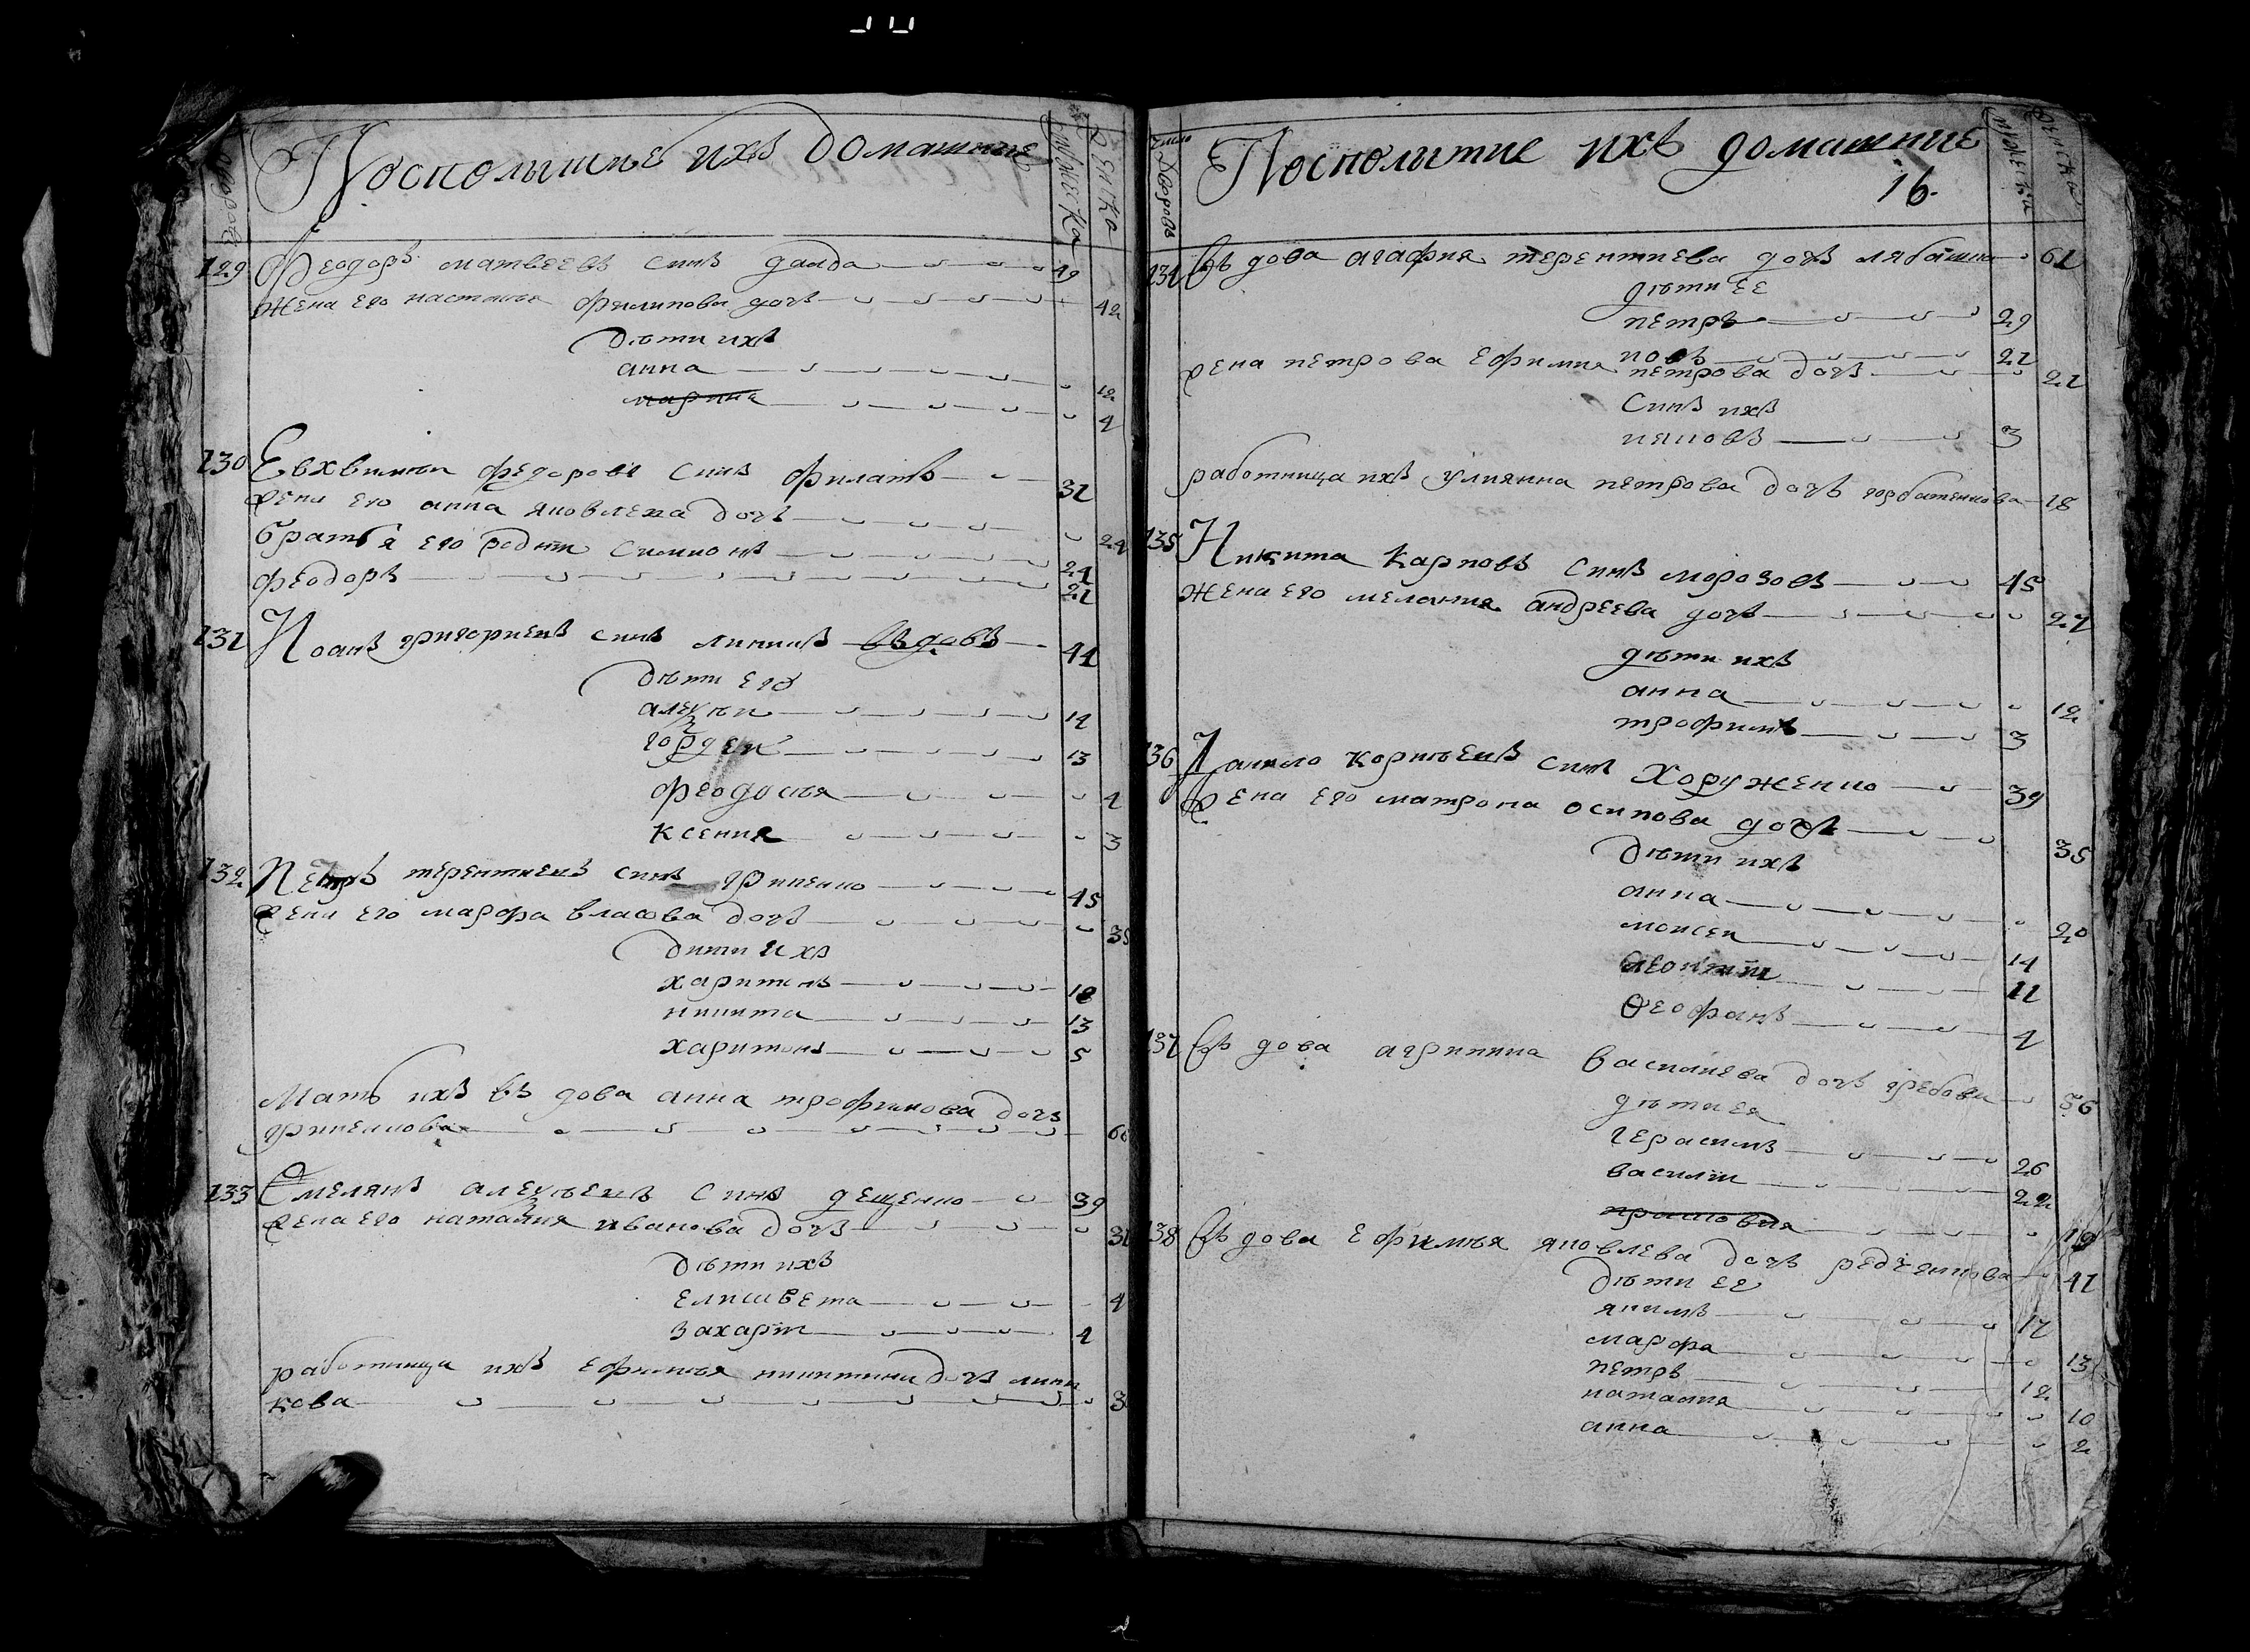 дворовъ
Посполитие ихъ домашние
мужеска
женска
129 Феодоръ матвеевъ синъ даида 49
жена его настасья филипова дочь 42
дѣти ихъ
анна 12
марина 4
130 Евхвимъи федоровъ синъ филатъ 31
жена его анна яковлева дочь 24
братья его родніи симионъ 24
феодоръ 21
131 Иоанъ григориевъ синъ линникъ въдовъ 41
дѣти его
алеѯѣи 14
гордеи 13
феодосья 4
ксения 3
132 Петръ терентиевъ синъ гриненко 45
жена его марфа власова дочь 35
дити ихъ
харитонъ 18
никита 13
харитонъ 5
Мать ихъ въдова анна трофимова дочъ
гриненкова
133 Омелянъ алеѯѣевъ синъ дещенко 39
жена его наталия иванова дочъ
дѣти ихъ
елисавета 4
захарїи 1
работница ихъ ефимия никитина дочъ линни
кова
число дворовъ
Посполитие ихъ домашние
16.
мужеска
женска
134 Въдова агафия терентиева дочъ 61
дѣти ее
петръ 29
яковъ 21
жена петрова ефимия петрова дочъ 21
синъ ихъ
яковъ 3
работница ихъ улиянна петрова дочъ горбатенкова 18
135 Никита карповъ синъ морозовъ 45
жена его мелания андреева дочъ 27
дѣти ихъ
анна 12
трофимъ 3
136 Данило корнѣевъ синъ хоруженко 39
жена его матрона осипова дочъ 35
дѣти ихъ
анна 20
моисеи 14
леонтїи 11
Ѳеофанъ 4
137 Въдова агрипина василиева дочъ гребова 56
дѣти ея
герасимъ 26
василїи 22
прасковия 19
138 Въдова ефимѣя яковлева дочъ 41
дѣти ее
якимъ 17
марфа 13
петръ 12
наталия 10
анна 2